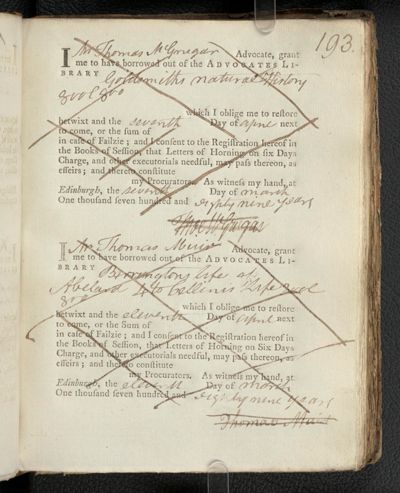 193.
I Mr Thomas McGregar Advocate, grant
me to have borrowed out of the ADVOCATES LI-
BRARY Goldsmiths natural History
8 vol 8vo
which I oblige me to reſtore
betwixt and the seventh Day of april next
to come, or the ſum of
in caſe of Failzie; and I conſent to the Regiſtration hereof in
the Books of Seſſion, that Letters of Horning on ſix Days
Charge, and other executorials needful, may paſs thereon, as
effeirs; and thereto conſtitute
my Procurators. As witneſs my hand, at
Edinburgh, the seventh Day of march
One thouſand ſeven hundred and eighty nine years
Thos. McGregar
I Mr. Thomas Muir Advocate, grant
me to have borrowed out of the ADVOCATES LI-
BRARY Berringtons life of
Abelard 4to Cellinis Life 2 vol
8vo
which I oblige me to reſtore
betwixt and the eleventh Day of april next
to come, or the ſum of
in caſe of Failzie; and I conſent to the Regiſtration hereof in
the Books of Seſſion, that Letters of Horning on Six Days
Charge, and other executorials needful, may paſs thereon, as
effeirs; and thereto conſtitute
my Procurators. As witneſs my hand, at
Edinburgh, the eleventh Day of march
One thouſand ſeven hundred and eighty nine years
Thomas Muir